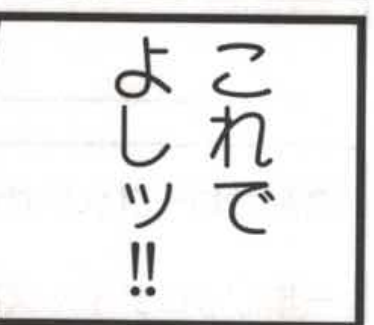 これで
よしッ‼